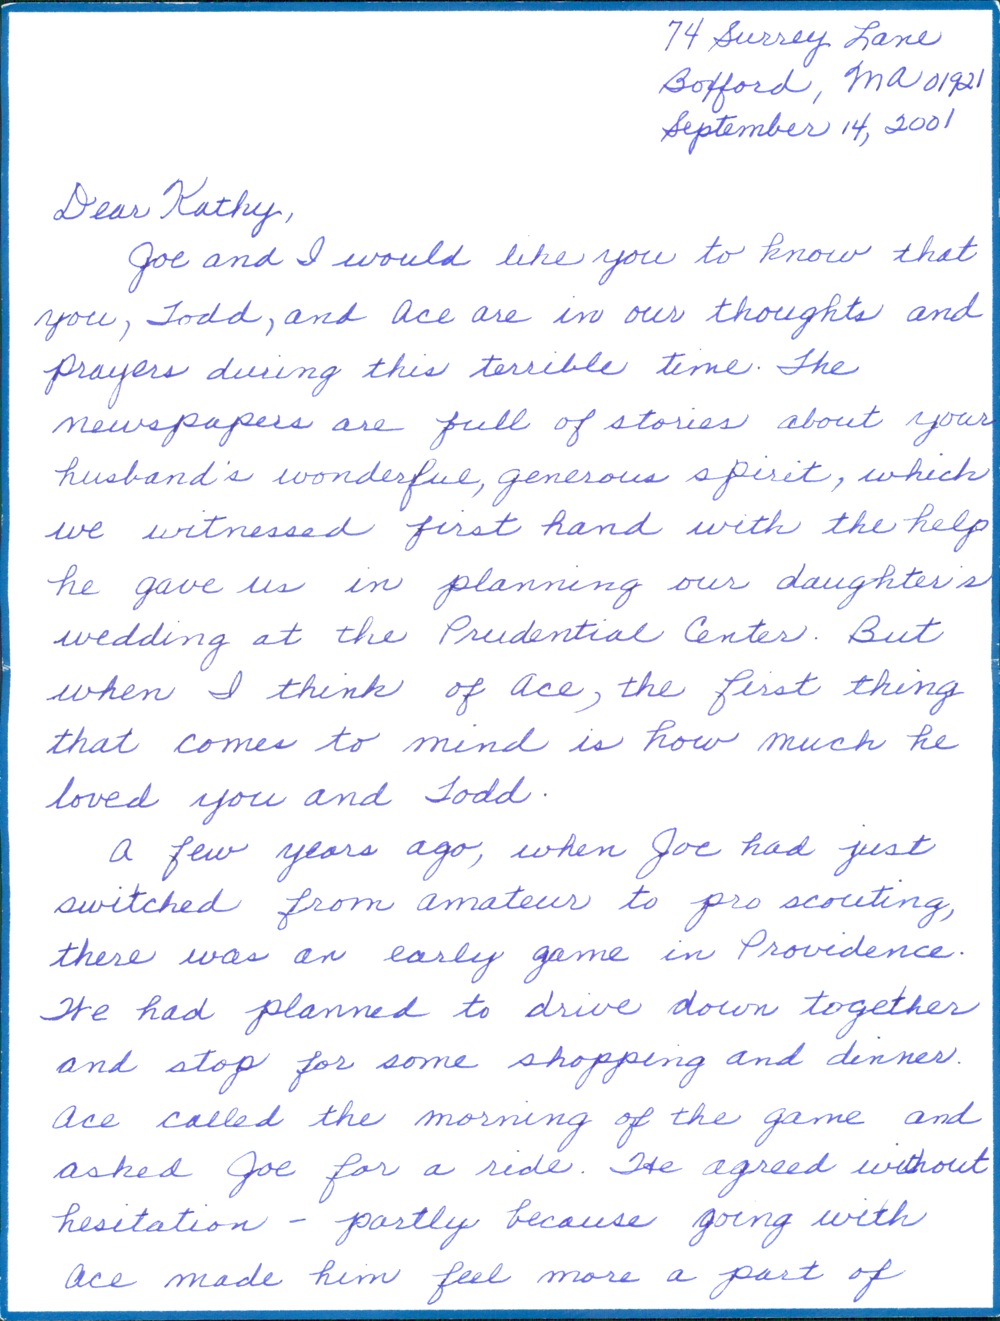 74 Surrey Lane
Boxford, MA 01921
September 14, 2001
Dear Kathy,
Joe and I would like you to know that
you, Todd, and Ace are in our thoughts and
prayers during this terrible time. The
newspapers are full of stories about your
husband's wonderful, generous spirit, which
we witnessed first hand with the help
he gave us in planning our daughter's
wedding at the Prudential Center. But
when I think of Ace, the first thing
that comes to mind is how much he
loved you and Todd.
A few years ago, when Joe had just
switched from amateur to pro scouting,
there was an early game in Providence.
We had planned to drive down together
and stop for some shopping and dinner.
Ace called the morning of the game and
asked Joe for a ride. He agreed without
hesitation - partly because going with
Ace made him feel more a part of